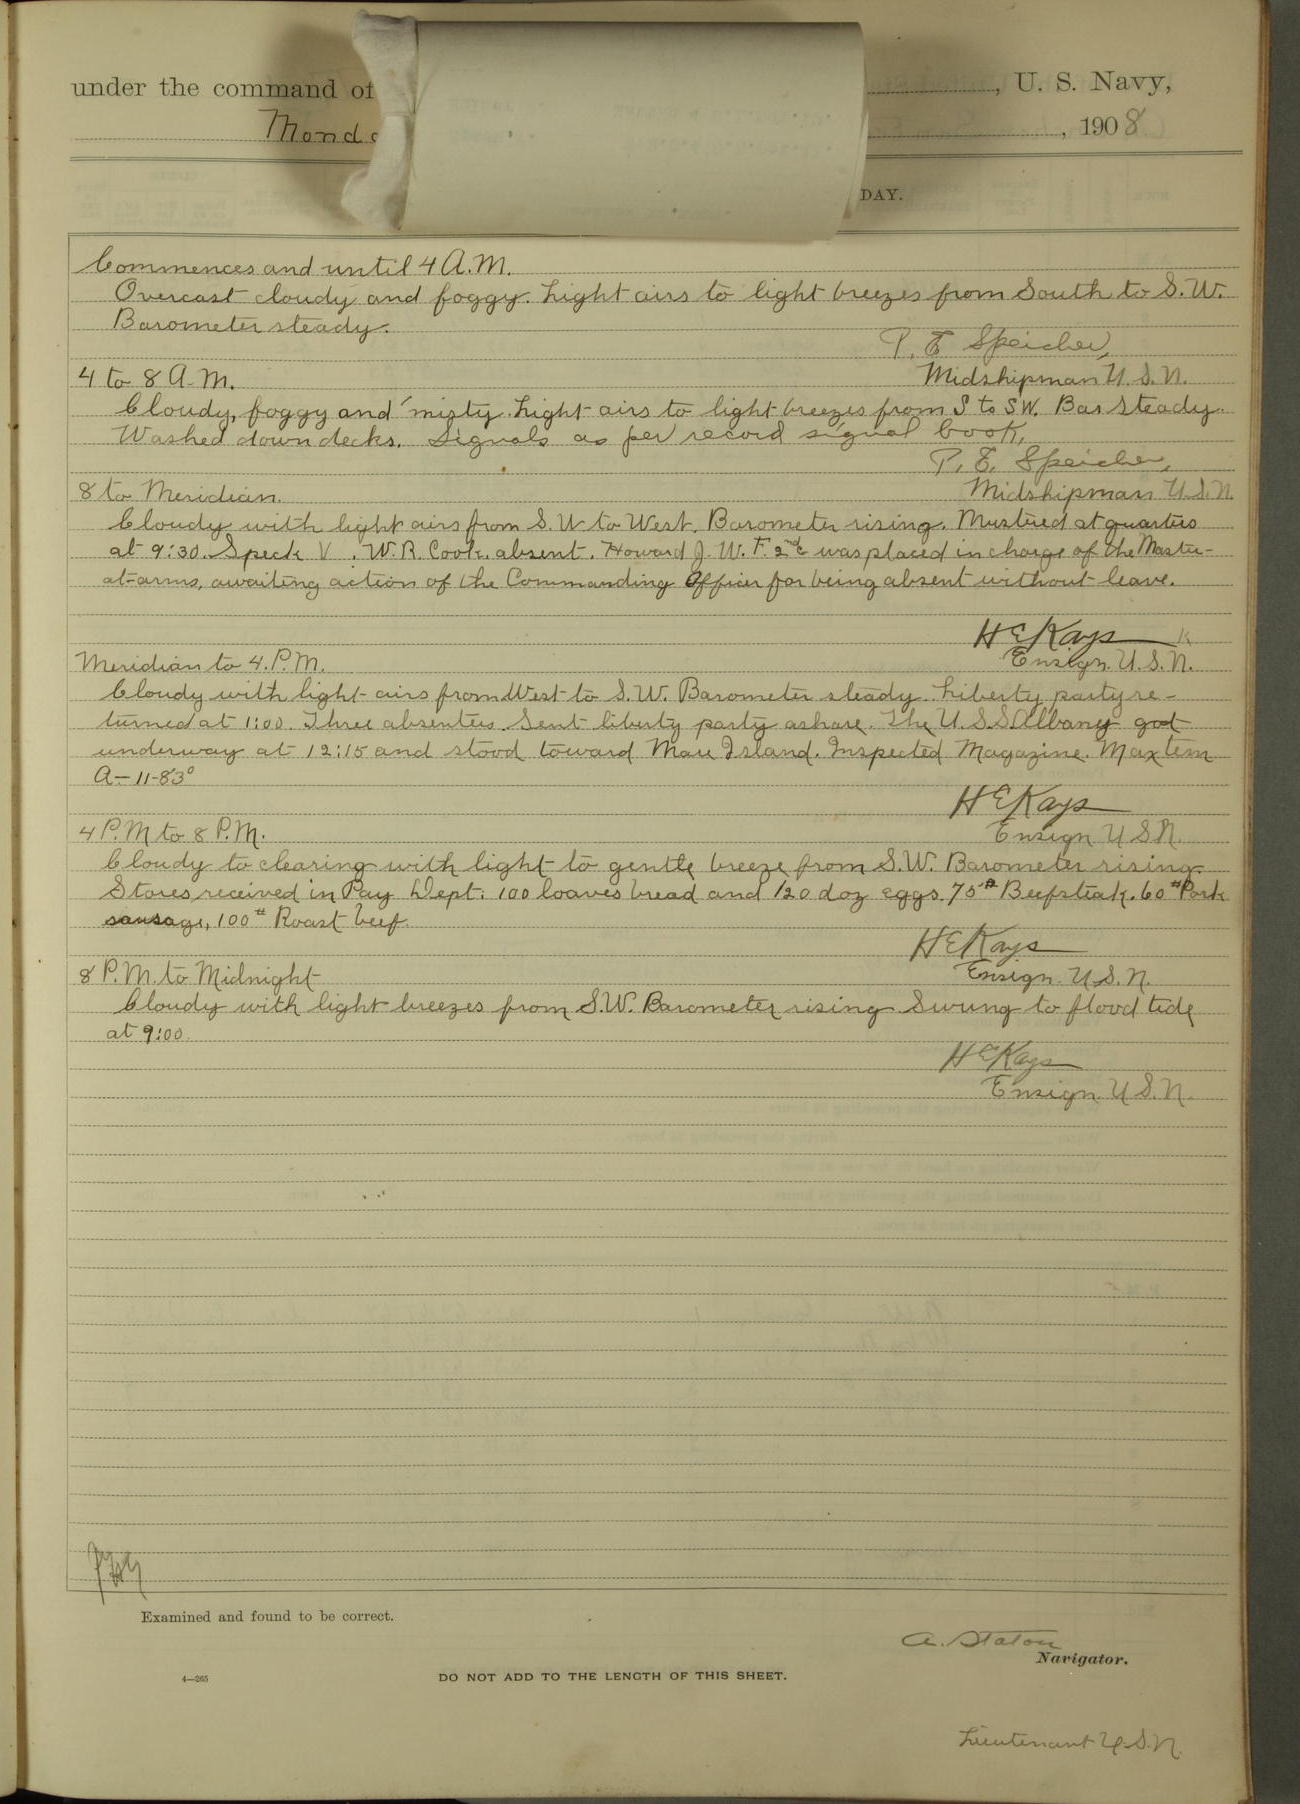 under the command of , U. S. Navy,
Monda , 1908
DAY.
Commences and until 4 A.M.
Overcast cloudy and foggy. Light airs to light breezes from South to S.W.
Barometer steady.
P. E. Speicher,
4 to 8 A.M. Midshipman U.S.N.
Cloudy, foggy and misty. Light airs to light breezes from S to SW. Bar Steady.
Washed down decks. Signals as per record signal book,
P. E. Speicher,
8 to Meridian. Midshipman U.S.N.
Cloudy with light airs from S.W to West. Barometer rising. Mustered at quarters
at 9:30. Speck V. W.R. Cook absent. Howard J. W. F. 2nd c was placed in charge of the Master-
at-arms, awaiting action of the Commanding Officer for being absent without leave.
H E Kays
Meridian to 4. P.M. Ensign. U.S.N.
Cloudy with light airs from West to S.W. Barometer steady. Liberty party re-
turned at 1:00. Three absentees. Sent liberty party ashore. The U.S.S. Albany got
underway at 12:15 and stood toward Mare Island. Inspected Magazine. Max tem
A-11-83°
H E Kays
4 P.M to 8 P.M. Ensign U S N.
Cloudy to clearing with light to gentle breeze from S.W. Barometer rising.
Stores received in Pay Dept: 100 loaves bread and 120 doz eggs. 75# Beefsteak. 60# Pork
sausage, 100# Roast beef.
H E Kays
8 P.M. to Midnight Ensign. U.S.N.
Cloudy with light breezes from S.W. Barometer rising. Swung to flood tide
at 9:00.
H E Kays
Ensign. U.S.N.
Examined and found to be correct.
A. Staton
Navigator.
4—265
DO NOT ADD TO THE LENGTH OF THIS SHEET.
Lieutenant U.S.N.